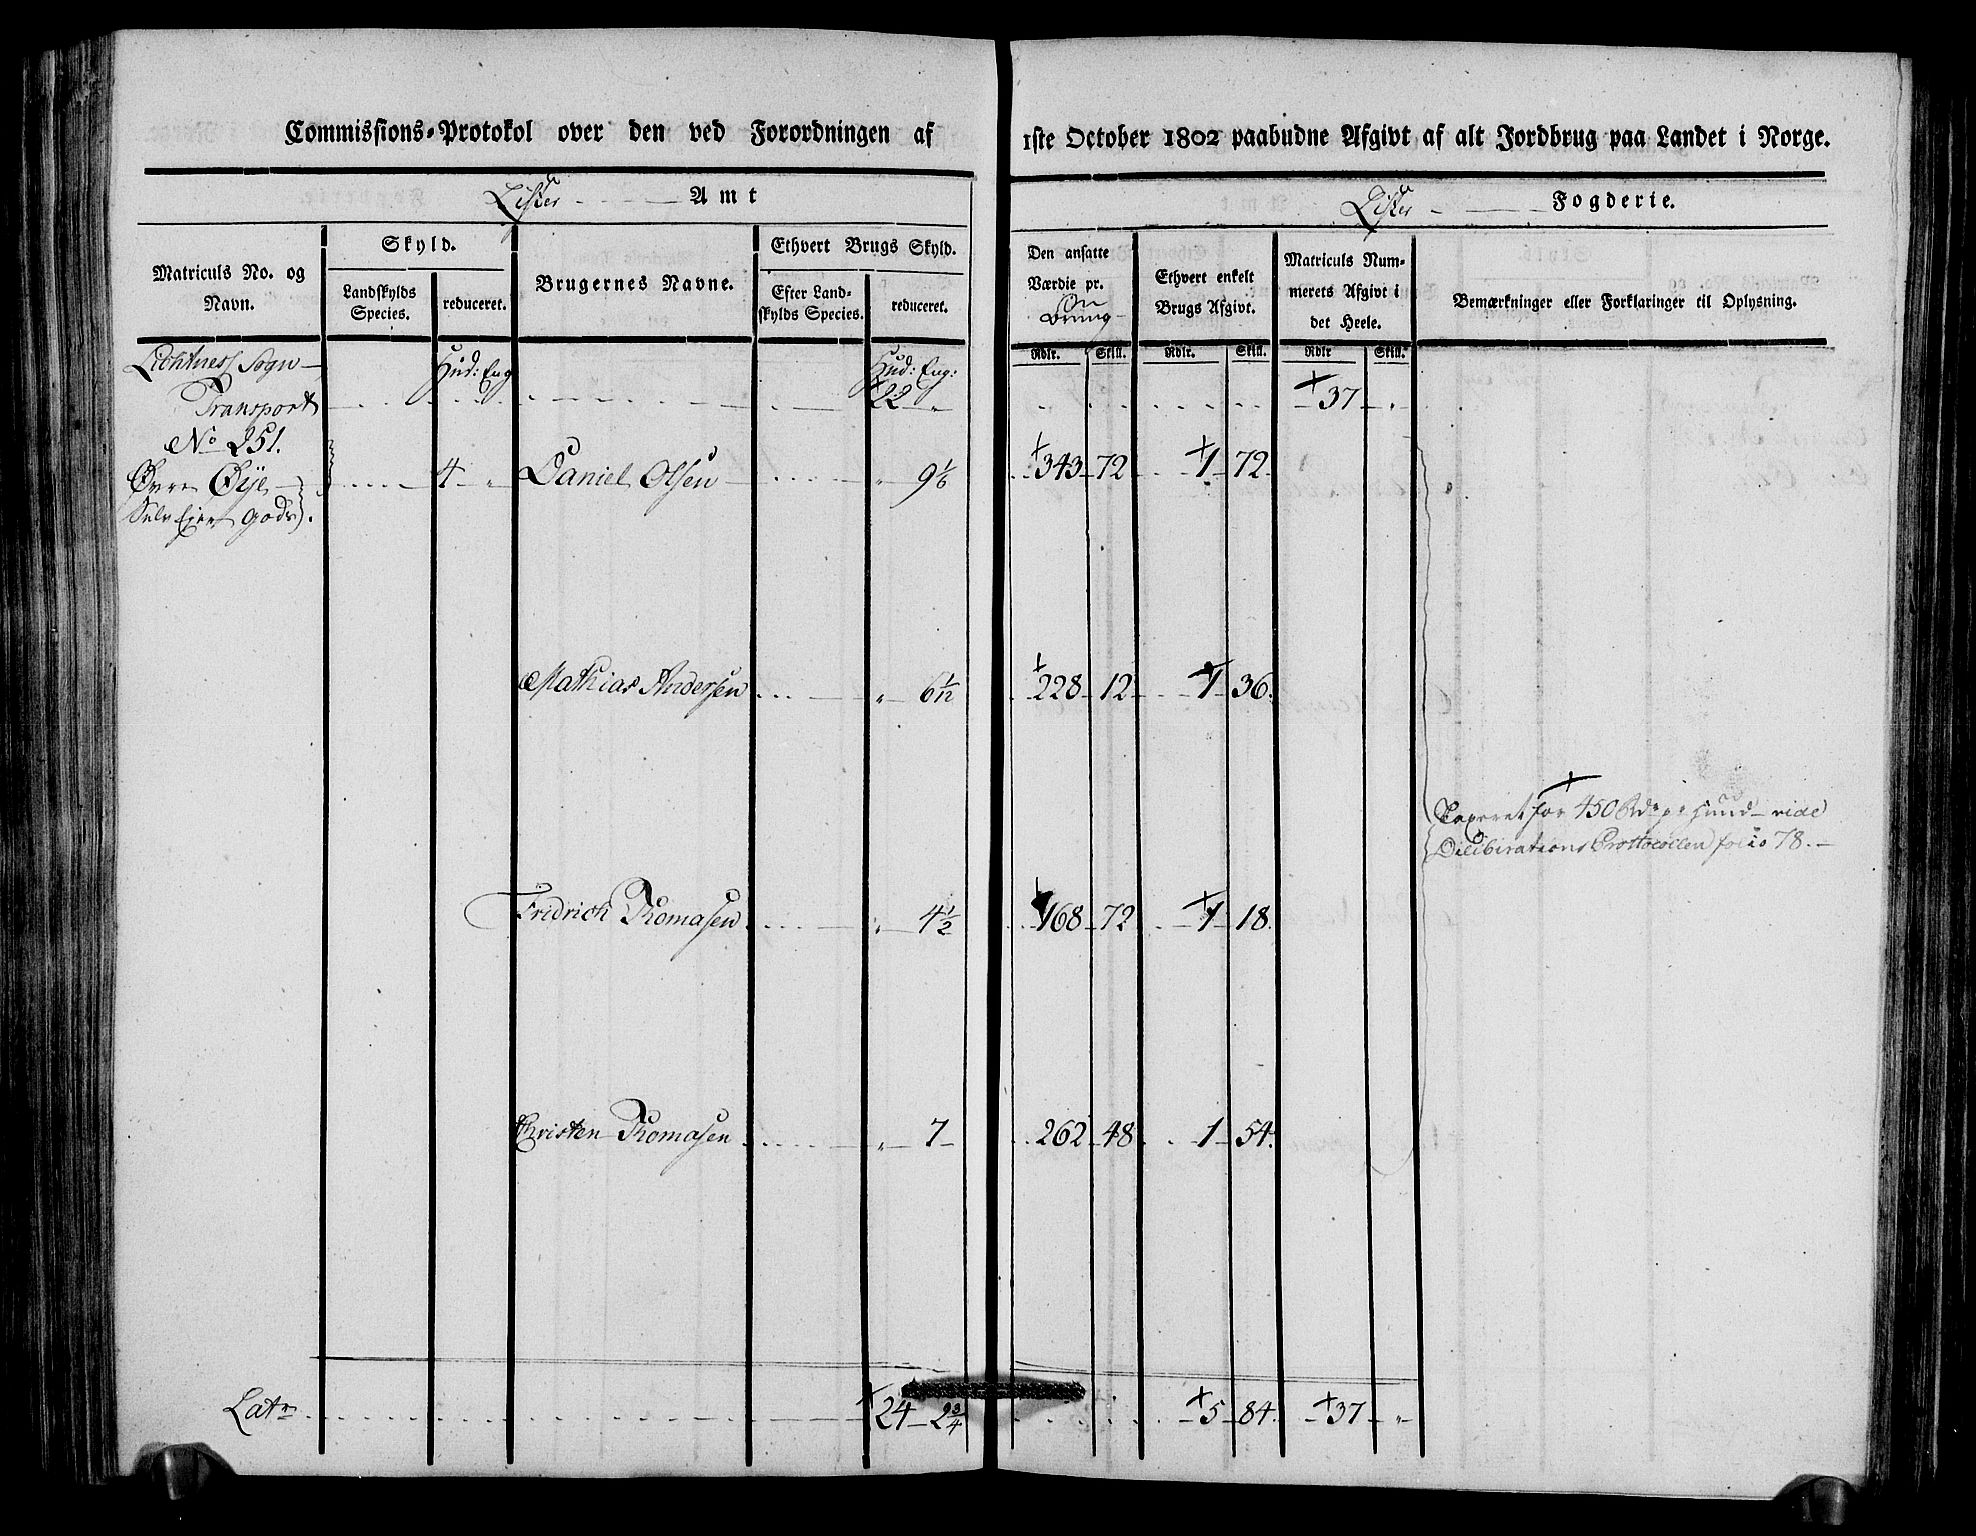 Commissions-Protokol over den ved Forordningen af 1ste October 1802 paabudne Afgivt af alt Jordbrug paa Landet i Norge.
Lister Amt
Lister Fogderie.
Matriculs No. og Navn.
Skyld.
Landskylds Species.
reduceret.
Brugernes Navne.
Ethvert Brugs Skyld.
Efter Landskylds Species.
reduceret.
Den ansatte Værdie pr.
Ethvert enkelt Brugs Afgivt.
Matriculs Nummerets Afgivt i det Heele.
Bemærkninger eller Forklaringer til Oplysning.
Rdlr. Skill. Rdlr. Skill. Rdlr Skill.
Sogn Hud: Eng Hud: Eng:
Transport 22 " 37 "
No 251.
Øvre Øye 4 " Daniel Olsen " 9 1/6 343 72 1 72
Selv Eier Gods.
Mathias Andersen " 6 1/12 228 12 1 36.
Taxeret for 450 Rdr pr Huud vide
Delibirations Prottocollen folio 78.
Fridrich Thomasen " 4 1/2 168 72 1 18.
Christen Thomasen " 7 262 48 1 54.
Latr 24 2 3/4 5 84. 37 "